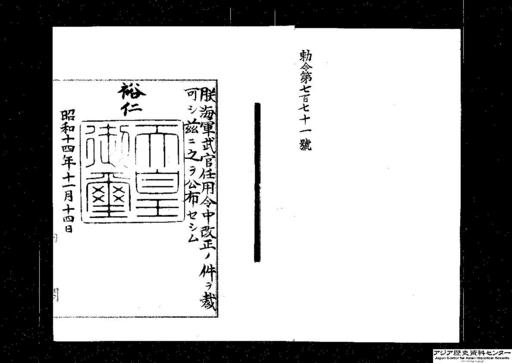 勅令第七百七十一號
朕海軍武官任用令中改正ノ件ヲ裁
可シ茲ニ之ヲ公布セシム
裕仁
天皇
御璽
昭和十四年十一月十四日
アジア歴史資料センター
Japan Center for Asian Historical Records